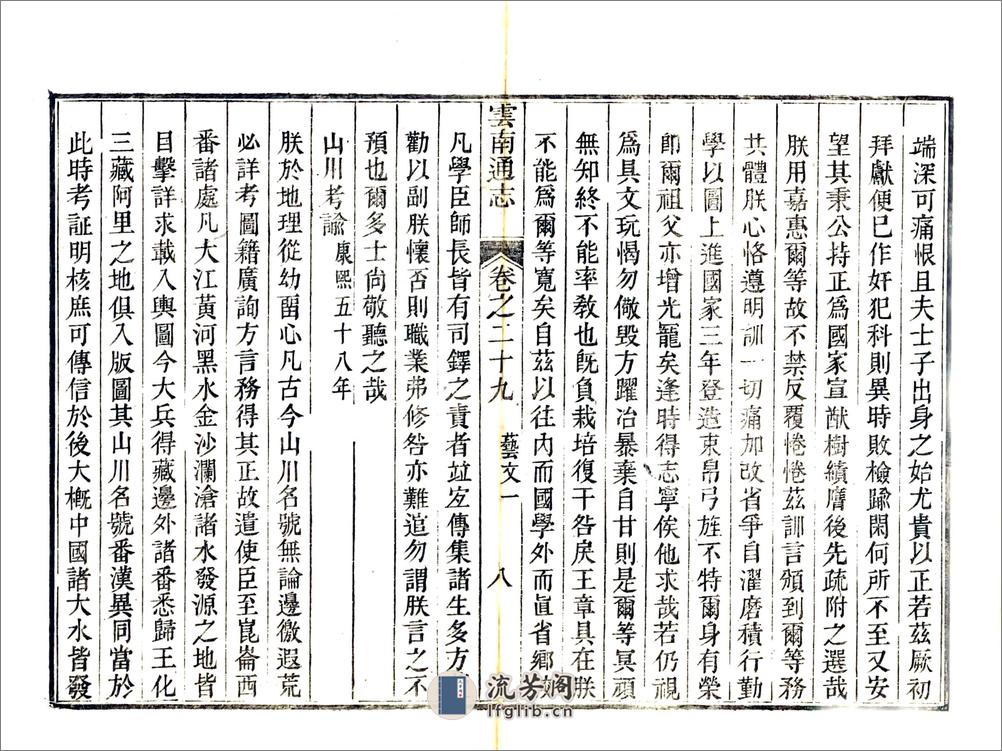 端深可痛恨且夫士子出身之始尤貴以正若茲厥初
拜獻便已作奸犯科則異時敗檢踰閑何所不至又安
望其秉公持正爲國家宣猷樹績膺後先疏附之選哉
朕用嘉惠爾等故不禁反覆惓惓茲訓言頒到爾等務
共體朕心恪遵明訓一切痛加改省爭自濯磨積行勤
學以圖上進國家三年登造束帛弓旌不特爾身有榮
卽爾祖父亦增光寵矣逢時得志寧俟他求哉若仍視
爲具文玩愒勿儆毀方躍冶暴棄自甘則是爾等冥頑
無知終不能率教也旣負栽培復干咎戾王章具在朕
不能爲爾等寬矣自茲以往內而國學外而直省鄉
雲南通志 卷之二十九 藝文一 八
凡學臣師長皆有司鐸之責者竝宜傳集諸生多方董
勸以副朕懷否則職業弗修咎亦難逭勿謂朕言之不
預也爾多士尚敬聽之哉
山川考諭 康熙五十八年
朕於地理從幼畱心凡古今山川名號無論邊徼遐荒
必詳考圖籍廣詢方言務得其正故遣使臣至崑崙西
番諸處凡大江黃河黑水金沙瀾滄諸水發源之地皆
目擊詳求載入輿圖今大兵得藏邊外諸番悉歸王化
三藏阿里之地俱入版圖其山川名號番漢異同當於
此時考証明核庶可傳信於後大槪中國諸大水皆發
流芳閣
lfglib.cn